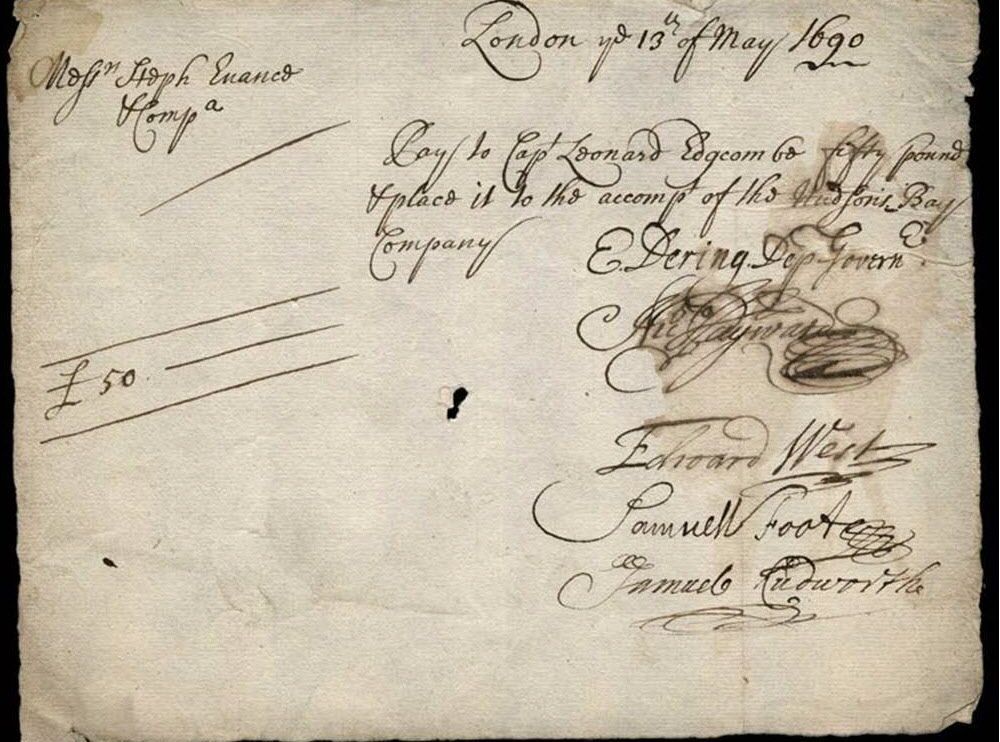 London ye 13th of May 1690
Messrs Steph Evance
& Compa
Pay to Capt Leonard Edgcombe fifty pound
& place it to the accompt of the Hudsons Bay
Company
E. Dering. Dep. Govern
£ 50
Hayward
Edward West
Samuell Foote
Samuel Cudworthe